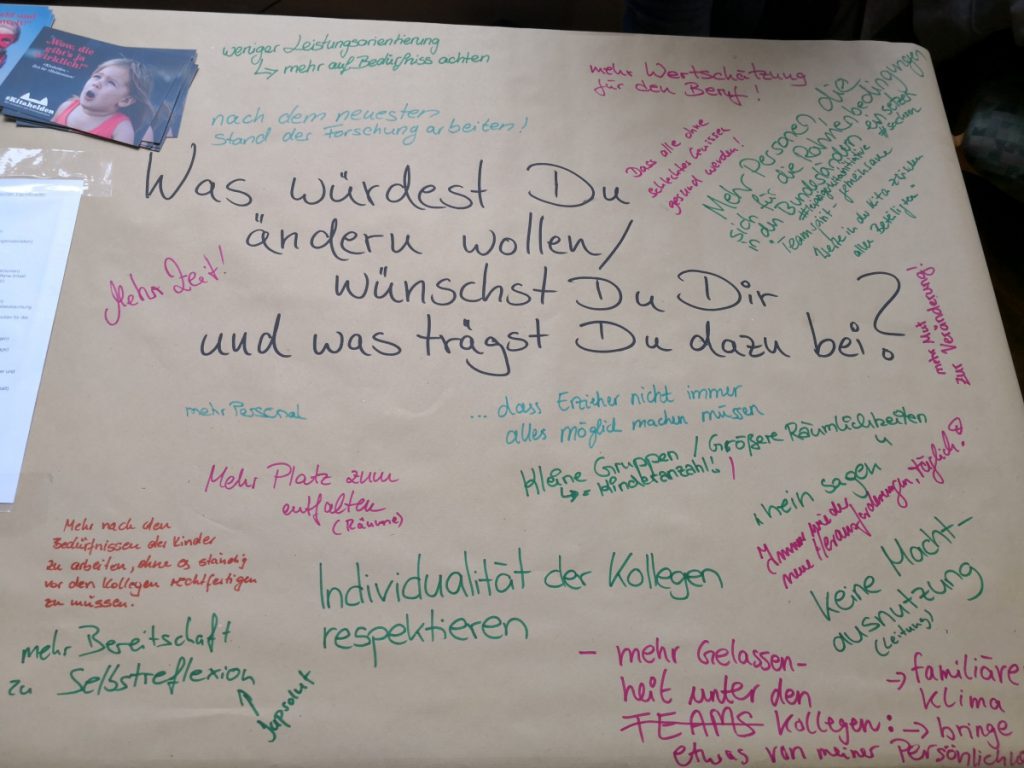 "Wow, die
gibt's ja
wirklich!"
#Kitahelden
weniger Leistungsorientierung
↳ mehr auf Bedürfniss achten
nach dem neuesten
Stand der Forschung arbeiten!
mehr Wertschätzung
für den Beruf!
Dass alle ohne
schlechtes Gewissen
gesund werden!
Mehr Personen, die
sich für die Rahmenbedingungen
in den Bundesländern einsetzen
Teamfähig - gemeinsame
Werte in der Kita
allen Beteiligten
Was würdest Du
ändern wollen/
wünschst Du Dir
und was trägst Du dazu bei?
Mehr Zeit!
mehr Mut
zur Veränderung!
mehr Personal
... dass Erzieher nicht immer
alles möglich machen müssen
Kleine Gruppen / Größere Räumlichkeiten
↳ = Kinderanzahl!!
Mehr Platz zum
entfalten
(Räume)
"nein sagen"
Immer wieder
neue Herausforderungen, täglich!
Mehr nach den
Bedürfnissen der Kinder
zu arbeiten, ohne es ständig
vor den Kollegen rechtfertigen
zu müssen.
Individualität der Kollegen
respektieren
keine Macht-
ausnutzung
(Leitung)
mehr Bereitschaft
zu Selbstreflexion
↑
Japsolut
- mehr Gelassen-
heit unter den
TEAMS Kollegen:
→ familiäre
Klima
→ bringe
etwas von meiner Persönlichk